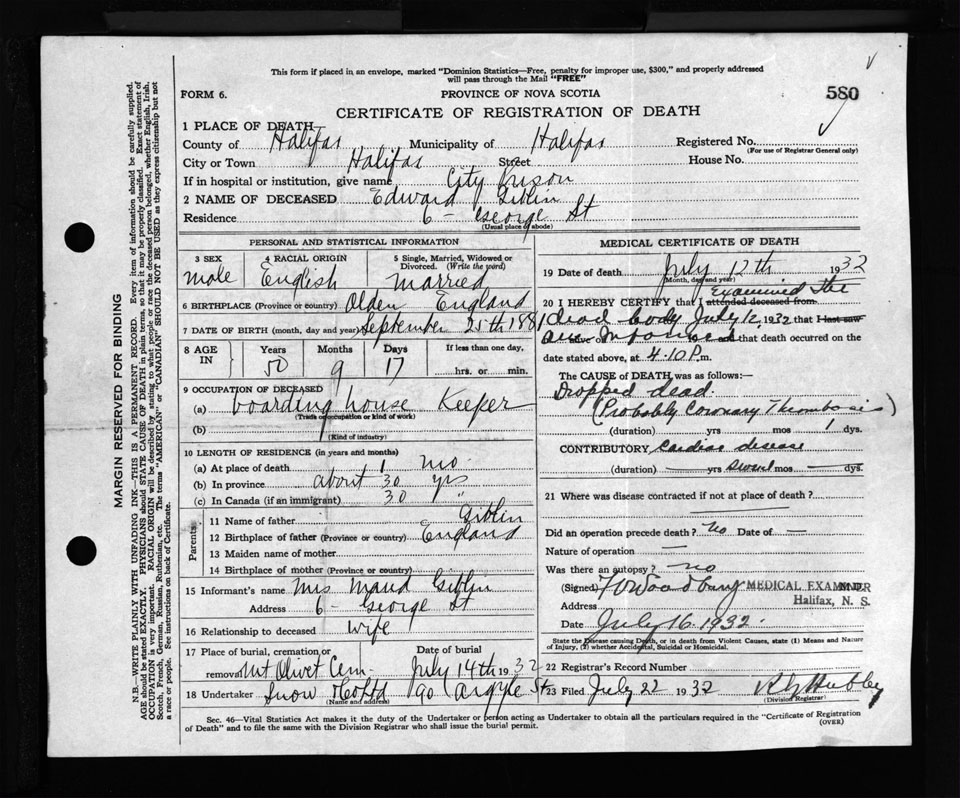 This form if placed in an envelope, marked "Dominion Statistics—Free, penalty for improper use, $300," and properly addressed
will pass through the Mail "FREE"
FORM 6. PROVINCE OF NOVA SCOTIA 580
CERTIFICATE OF REGISTRATION OF DEATH
1 PLACE OF DEATH—
County of Halifax Municipality of Halifax Registered No.
(For use of Registrar General only)
City or Town Halifax Street House No.
If in hospital or institution, give name City Prison
2 NAME OF DECEASED Edward Giblin
Residence 6 - George St
(Usual place of abode)
PERSONAL AND STATISTICAL INFORMATION
3 SEX 4 RACIAL ORIGIN 5 Single, Married, Widowed or
Divorced. (Write the word)
male English Married
6 BIRTHPLACE (Province or country) England
7 DATE OF BIRTH (month, day and year) September 25th 1881
8 AGE IN Years Months Days If less than one day,
50 9 17 hrs. or min.
9 OCCUPATION OF DECEASED
(a) boarding house Keeper
(Trade or occupation or kind of work)
(b)
(Kind of industry)
10 LENGTH OF RESIDENCE (in years and months)
(a) At place of death 1 mo
(b) In province about 30 yrs
(c) In Canada (if an immigrant) 30 "
Parents
11 Name of father Giblin
12 Birthplace of father (Province or country) England
13 Maiden name of mother
14 Birthplace of mother (Province or country)
15 Informant's name Mrs Maud Giblin
Address 6 - George St
16 Relationship to deceased wife
17 Place of burial, cremation or removal Mt Olivet Cem Date of burial July 14th 1932
18 Undertaker Snow & Co Ltd 90 Argyle St
(Name and address)
MEDICAL CERTIFICATE OF DEATH
19 Date of death July 12th 1932
(Month, day and year)
20 I HEREBY CERTIFY that I attended deceased from examined the
dead body July 12, 1932 that I last saw
and that death occurred on the
date stated above, at 4.10 P.m.
The CAUSE of DEATH was as follows:—
Dropped dead.
(Probably Coronary Thrombosis)
(duration) yrs mos 1 dys.
CONTRIBUTORY Cardiac disease
(duration) yrs several mos — dys.
21 Where was disease contracted if not at place of death?
Did an operation precede death? No Date of —
Nature of operation —
Was there an autopsy? no
(Signed) Woodbury MEDICAL EXAMINER M.D.
Address Halifax, N. S.
Date July 16. 1932.
State the Disease causing Death, or in death from Violent Causes, state (1) Means and Nature
of Injury, (2) whether Accidental, Suicidal or Homicidal.
22 Registrar's Record Number
23 Filed July 22 1932 Hubley
(Division Registrar)
Sec. 46—Vital Statistics Act makes it the duty of the Undertaker or person acting as Undertaker to obtain all the particulars required in the "Certificate of Registration
of Death" and to file the same with the Division Registrar who shall issue the burial permit. (OVER)
MARGIN RESERVED FOR BINDING
N.B.—WRITE PLAINLY WITH UNFADING INK—THIS IS A PERMANENT RECORD. Every item of information should be carefully supplied.
AGE should be stated EXACTLY. PHYSICIANS should STATE CAUSE OF DEATH in plain terms, so that it may be properly classified. Exact statement of
OCCUPATION is very important. RACIAL ORIGIN will be described by stating to what people or race the deceased person belonged, whether English, Irish,
Scotch, French, German, Russian, Ruthenian, etc. The terms "AMERICAN" or "CANADIAN" SHOULD NOT BE USED as they express citizenship but not
a race or people. See instructions on back of Certificate.